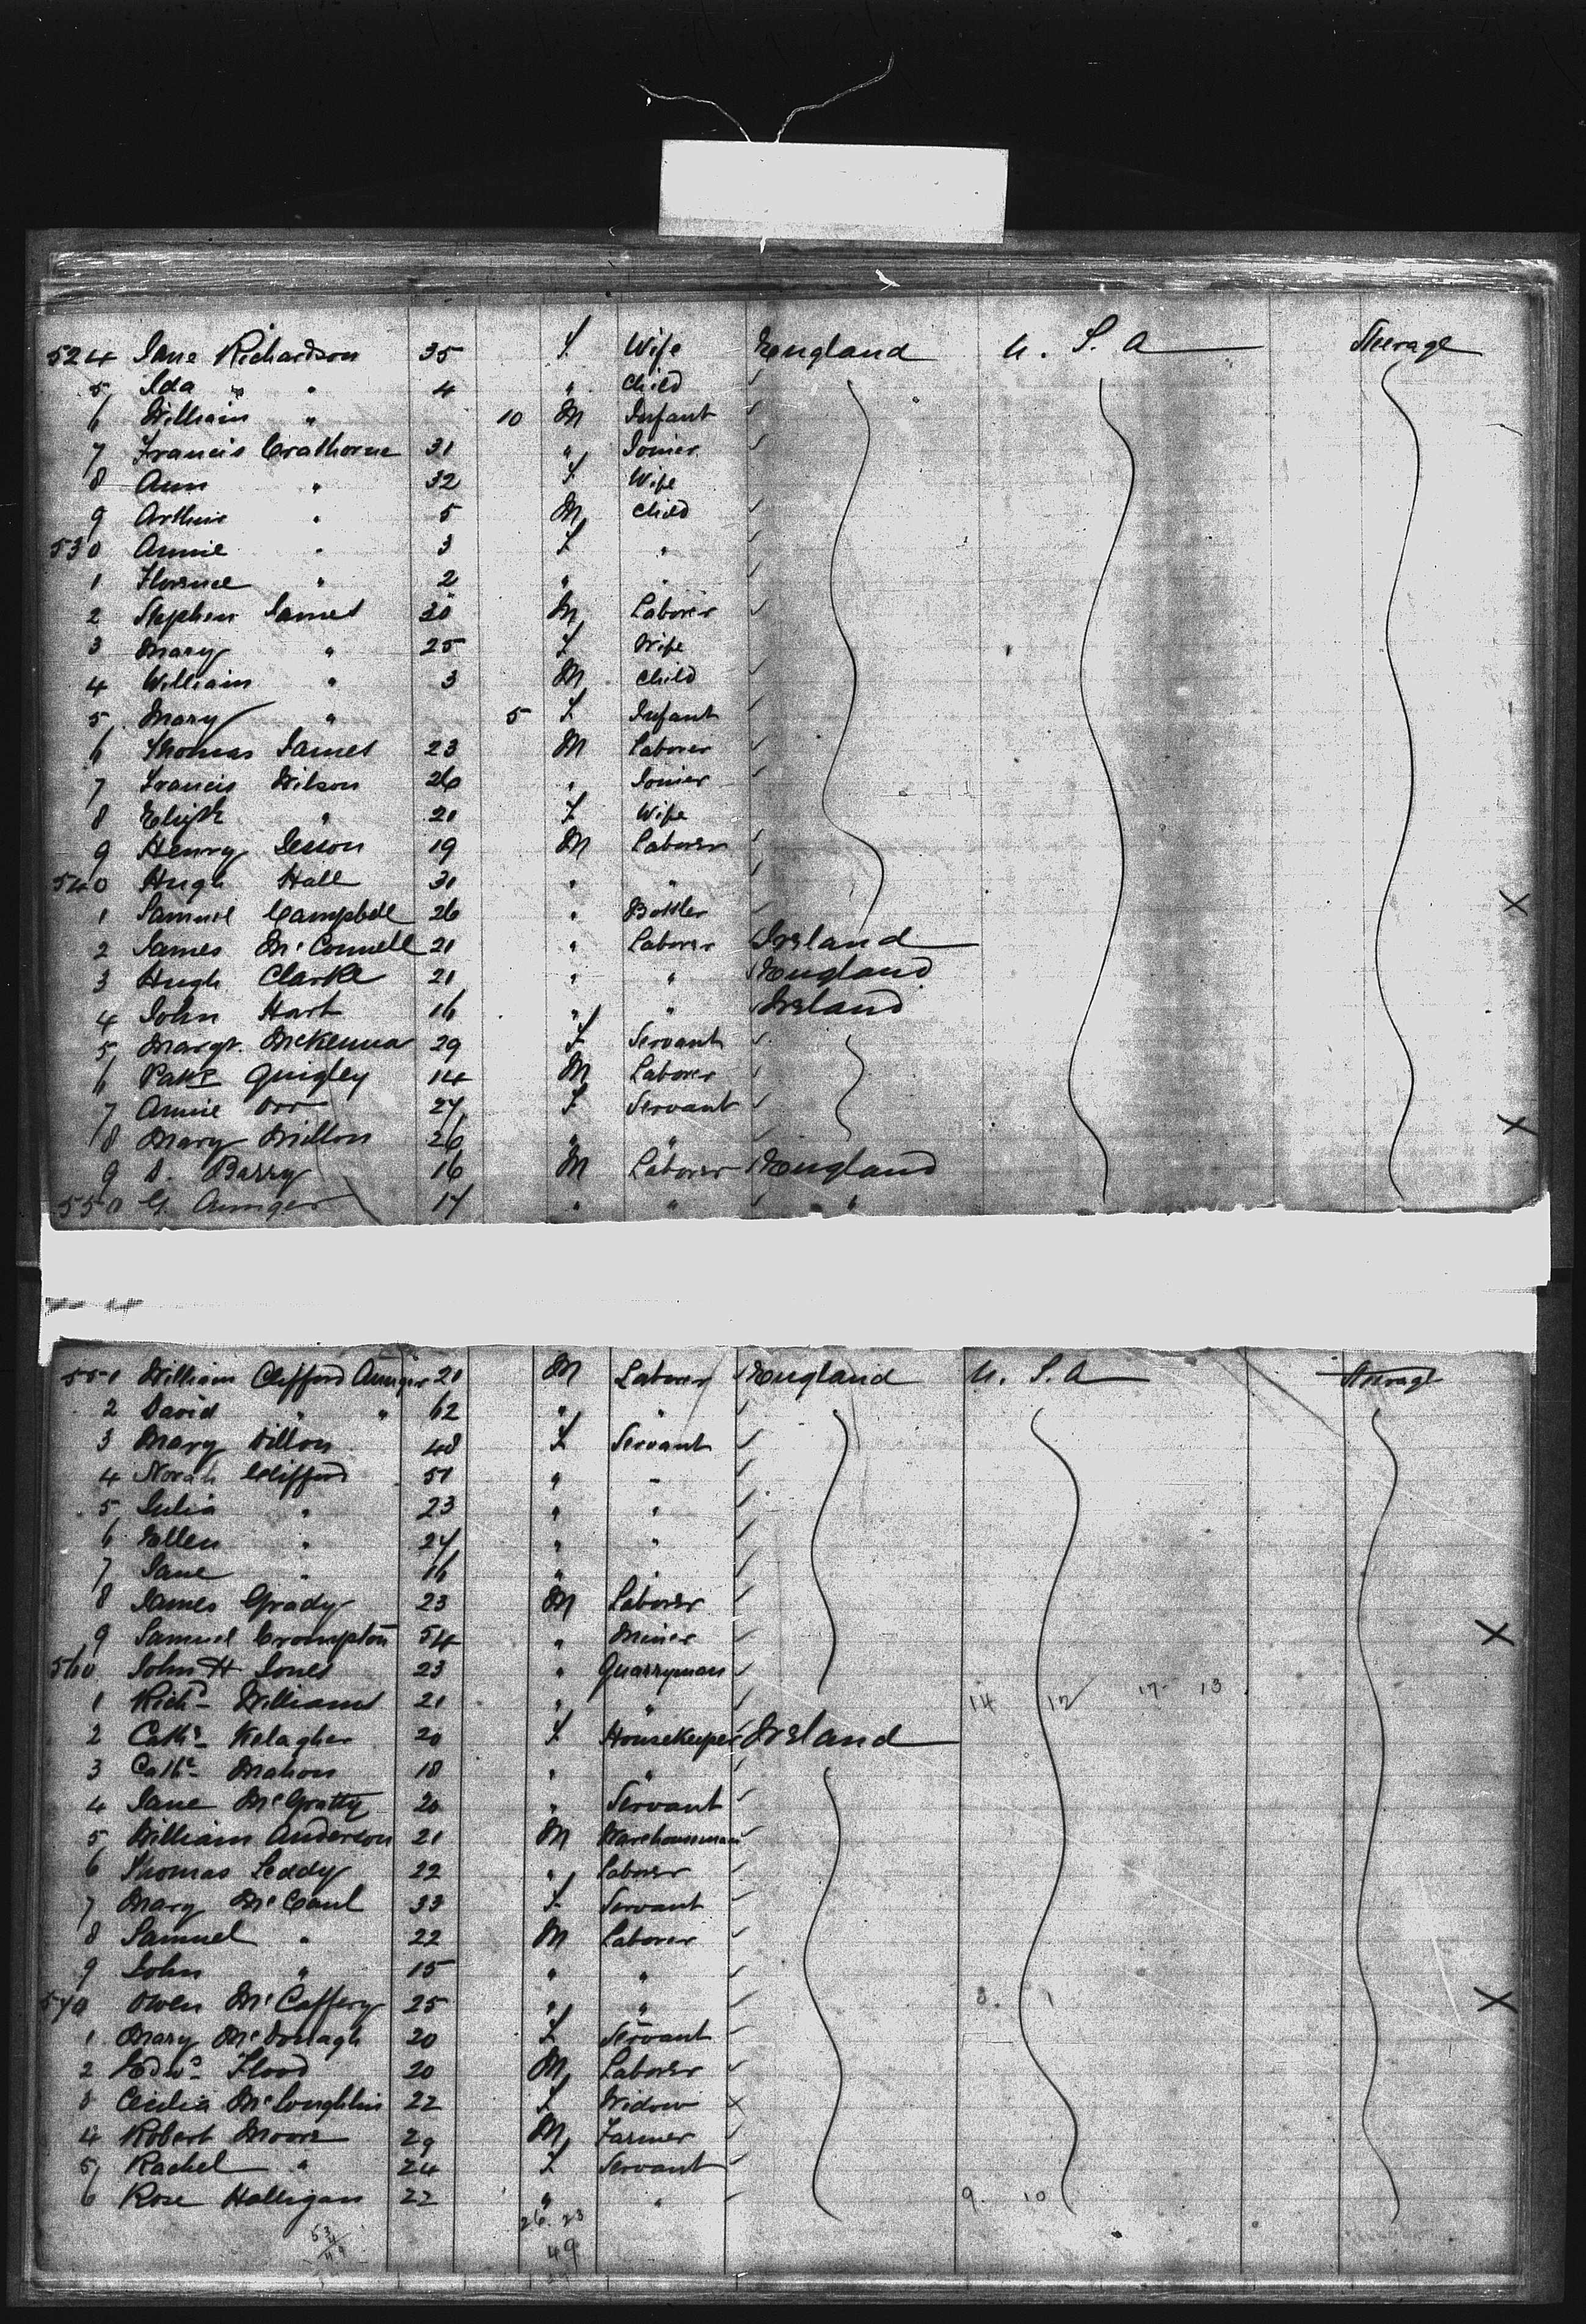 524 Jane Richardson 35 F Wife England U. S. A Steerage
5 Ida " " 4 " Child
6 William " 10 M Infant
7 Francis Crathorne 31 " Joiner
8 Ann " 32 F Wife
9 Arthur " 5 M Child
530 Annie " 3 F "
1 Florence " 2 " "
2 Stephen James 30 M Laborer
3 Mary " 25 F Wife
4 William " 3 M Child
5 Mary " 5 F Infant
6 Thomas James 23 M Laborer
7 Francis Wilson 26 " Joiner
8 Elizth " 21 F Wife
9 Henry 19 M Laborer
540 Hugh Hall 31 " "
1 Samuel Campbell 26 " Bottler X
2 James McConnell 21 " Laborer Ireland
3 Hugh Clarke 21 " " England
4 John Hart 16 " " Ireland
5 Margt. McKenna 29 F Servant
6 Patk Quigley 14 M Laborer
7 Annie Orr 27 F Servant
8 Mary Millon 26 " " X
9 D. Barry 16 M Laborer England
550 G. Aunger 17 " " "
551 William Clifford Aunger 21 M Laborer England U. S. A Steerage
2 David " " 62 " "
3 Mary Dillon 48 F Servant
4 Norah Clifford 51 " "
5 Julia " 23 " "
6 Ellen " 27 " "
7 Jane " 16 " "
8 James Grady 23 M Laborer
9 Samuel Crompton 54 " Miner X
560 John H Jones 23 " Quarryman
1 Richd Williams 21 " " 14 12 17 13
2 Cathe Kelagher 20 F Housekeeper Ireland
3 Cathe Mahon 18 " "
4 Jane McGrotty 20 " Servant
5 William Anderson 21 M Warehouseman
6 Thomas Leddy 22 " Laborer
7 Mary McCaul 33 F Servant
8 Samuel " 22 M Laborer
9 John " 15 " "
570 Owen McCaffery 25 " " 8. 1 X
1 Mary McDonagh 20 F Servant
2 Edwd Flood 20 M Laborer
3 Cecilia McLoughlin 22 F Widow X
4 Robert Moore 29 M Farmer
5 Rachel " 24 F Servant
6 Rose Halligan 22 " " 9. 10
26. 23
49